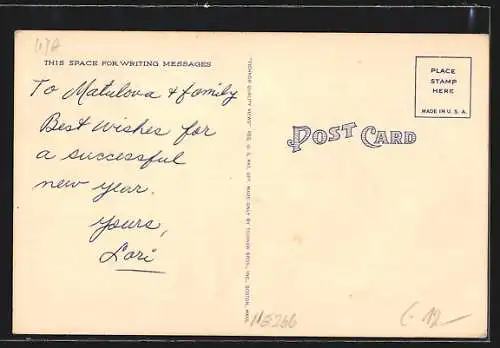 THIS SPACE FOR WRITING MESSAGES
To Matulova & family
Best Wishes for
a successful
new year.
Yours,
Lori
"TICHNOR QUALITY VIEWS" REG. U. S. PAT. OFF. MADE ONLY BY TICHNOR BROS., INC., BOSTON, MASS.
POST CARD
PLACE
STAMP
HERE
MADE IN U.S.A.